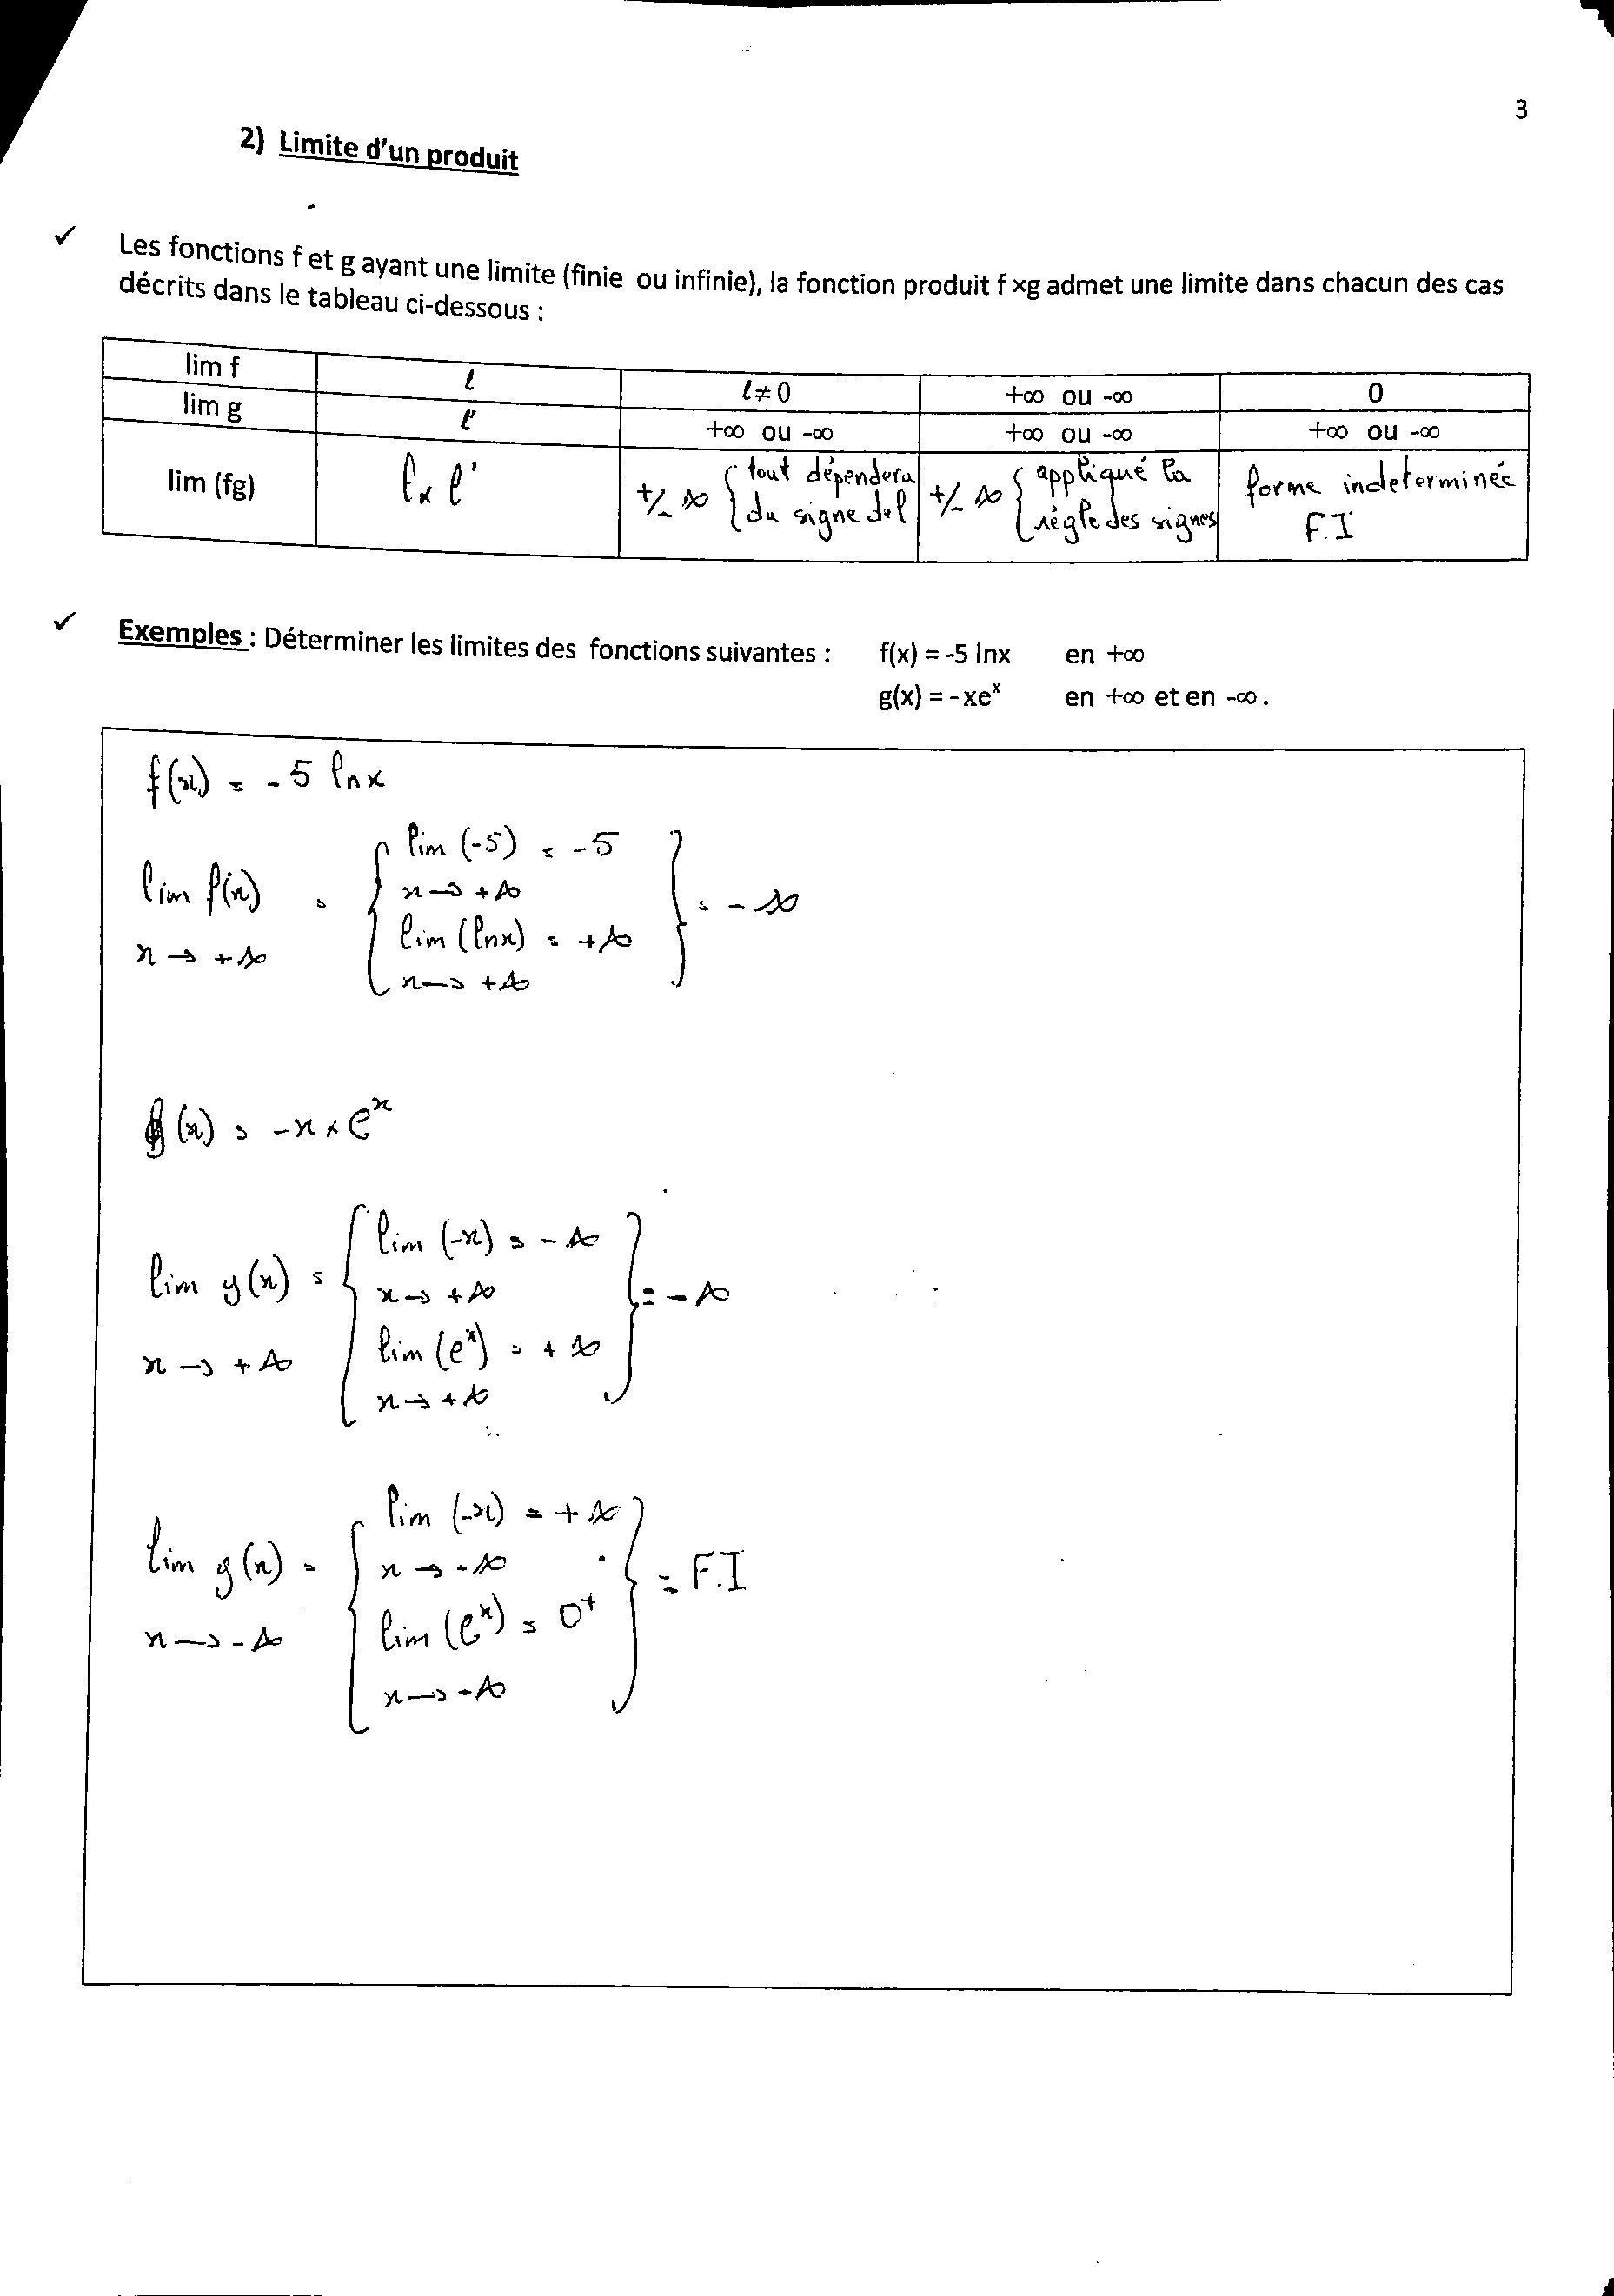 3
2) Limite d'un produit
✓ Les fonctions f et g ayant une limite (finie ou infinie), la fonction produit f ×g admet une limite dans chacun des cas
décrits dans le tableau ci-dessous :
lim f ℓ ℓ≠0 +∞ ou -∞ 0
lim g ℓ' +∞ ou -∞ +∞ ou -∞ +∞ ou -∞
lim (fg) l × l' +/- ∞ { tout dépendera du signe de l +/- ∞ { appliqué la règle des signes forme indeterminée F.I
✓ Exemples : Déterminer les limites des fonctions suivantes : f(x) = -5 lnx en +∞
g(x) = - xeˣ en +∞ et en -∞.
f(x) = - 5 lnx
lim (-5) = -5
lim f(x) = { x → +∞ } = - ∞
x → +∞ lim (lnx) = +∞
x → +∞
g(x) = -x × eˣ
lim (-x) = - ∞
lim g(x) = { x → +∞ } = - ∞
x → +∞ lim (eˣ) = + ∞
x → +∞
lim (-x) = + ∞
lim g(x) = { x → -∞ } = F.I
x → -∞ lim (eˣ) = 0⁺
x → -∞